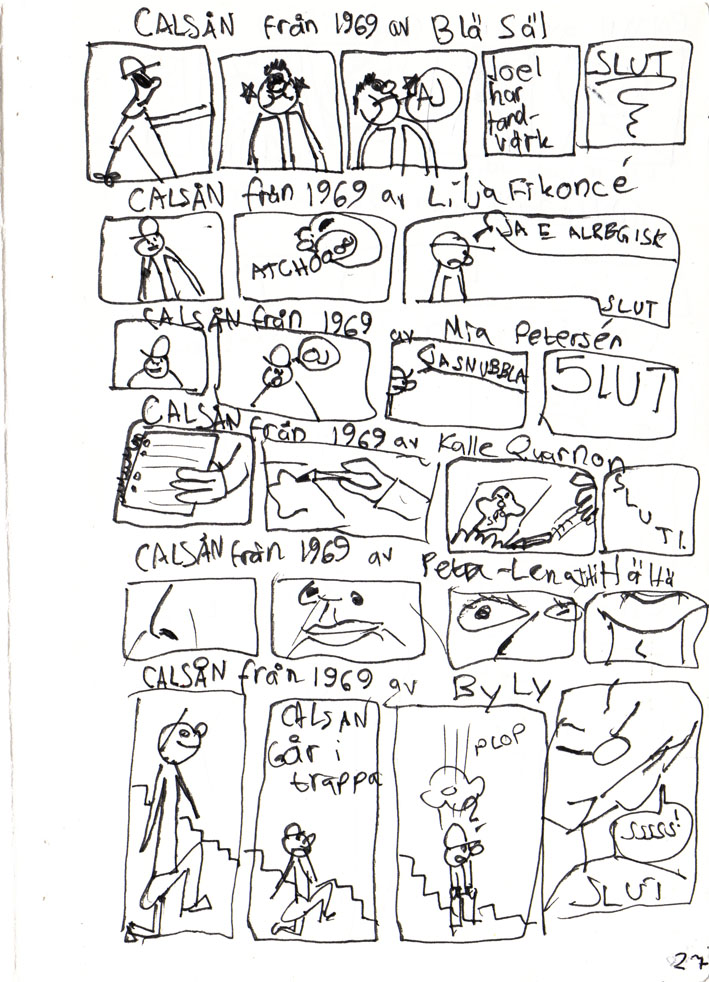 CALSÅN från 1969 av Blä Säl
AJ
Joel
har
tand-
värk
SLUT
CALSÅN från 1969 av Lilja Fikoncé
ATCHOOOO
JA E ALREGISK
SLUT
CALSÅN från 1969 av Mia Petersén
OJ
JA SNUBBLA
SLUT
CALSÅN från 1969 av Kalle Quarnon
SLUT!
CALSÅN från 1969 av
CALSÅN från 1969 av By Ly
CALSAN
Går i
trappa
PLOP
?
sssss!
SLUT
27